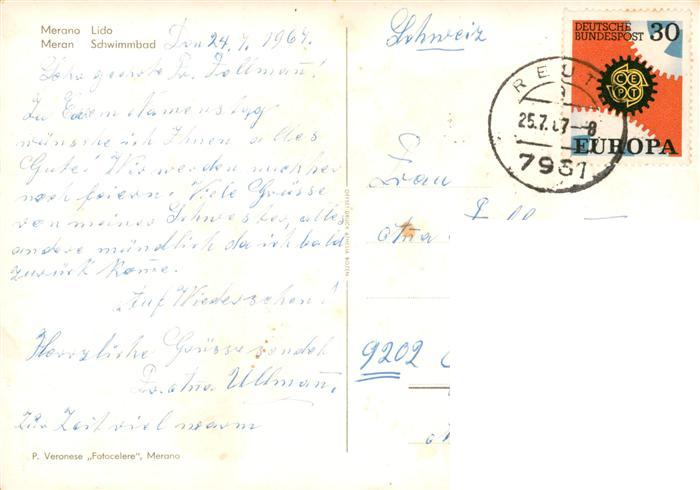 Merano Lido
Meran Schwimmbad
Den 24.7.1967.
Sehr geerte Fr. Dollmann!
Zu Eurem Namenstag
wünsche ich Ihnen alles
Gute! Wir werden nachher
noch feiern. Viele Grüsse
von meiner Schwester, alles
andere mündlich da ich bald
zurück kome.
Auf Wiedersehen!
Herzliche Grüsse sendet
Fr. Ullmann.
Zur Zeit viel warm
P. Veronese „Fotocelere", Merano
Schweiz
DEUTSCHE
BUNDESPOST 30
CEPT
EUROPA
REUT
25.7.67--8
7961
Frau
9202